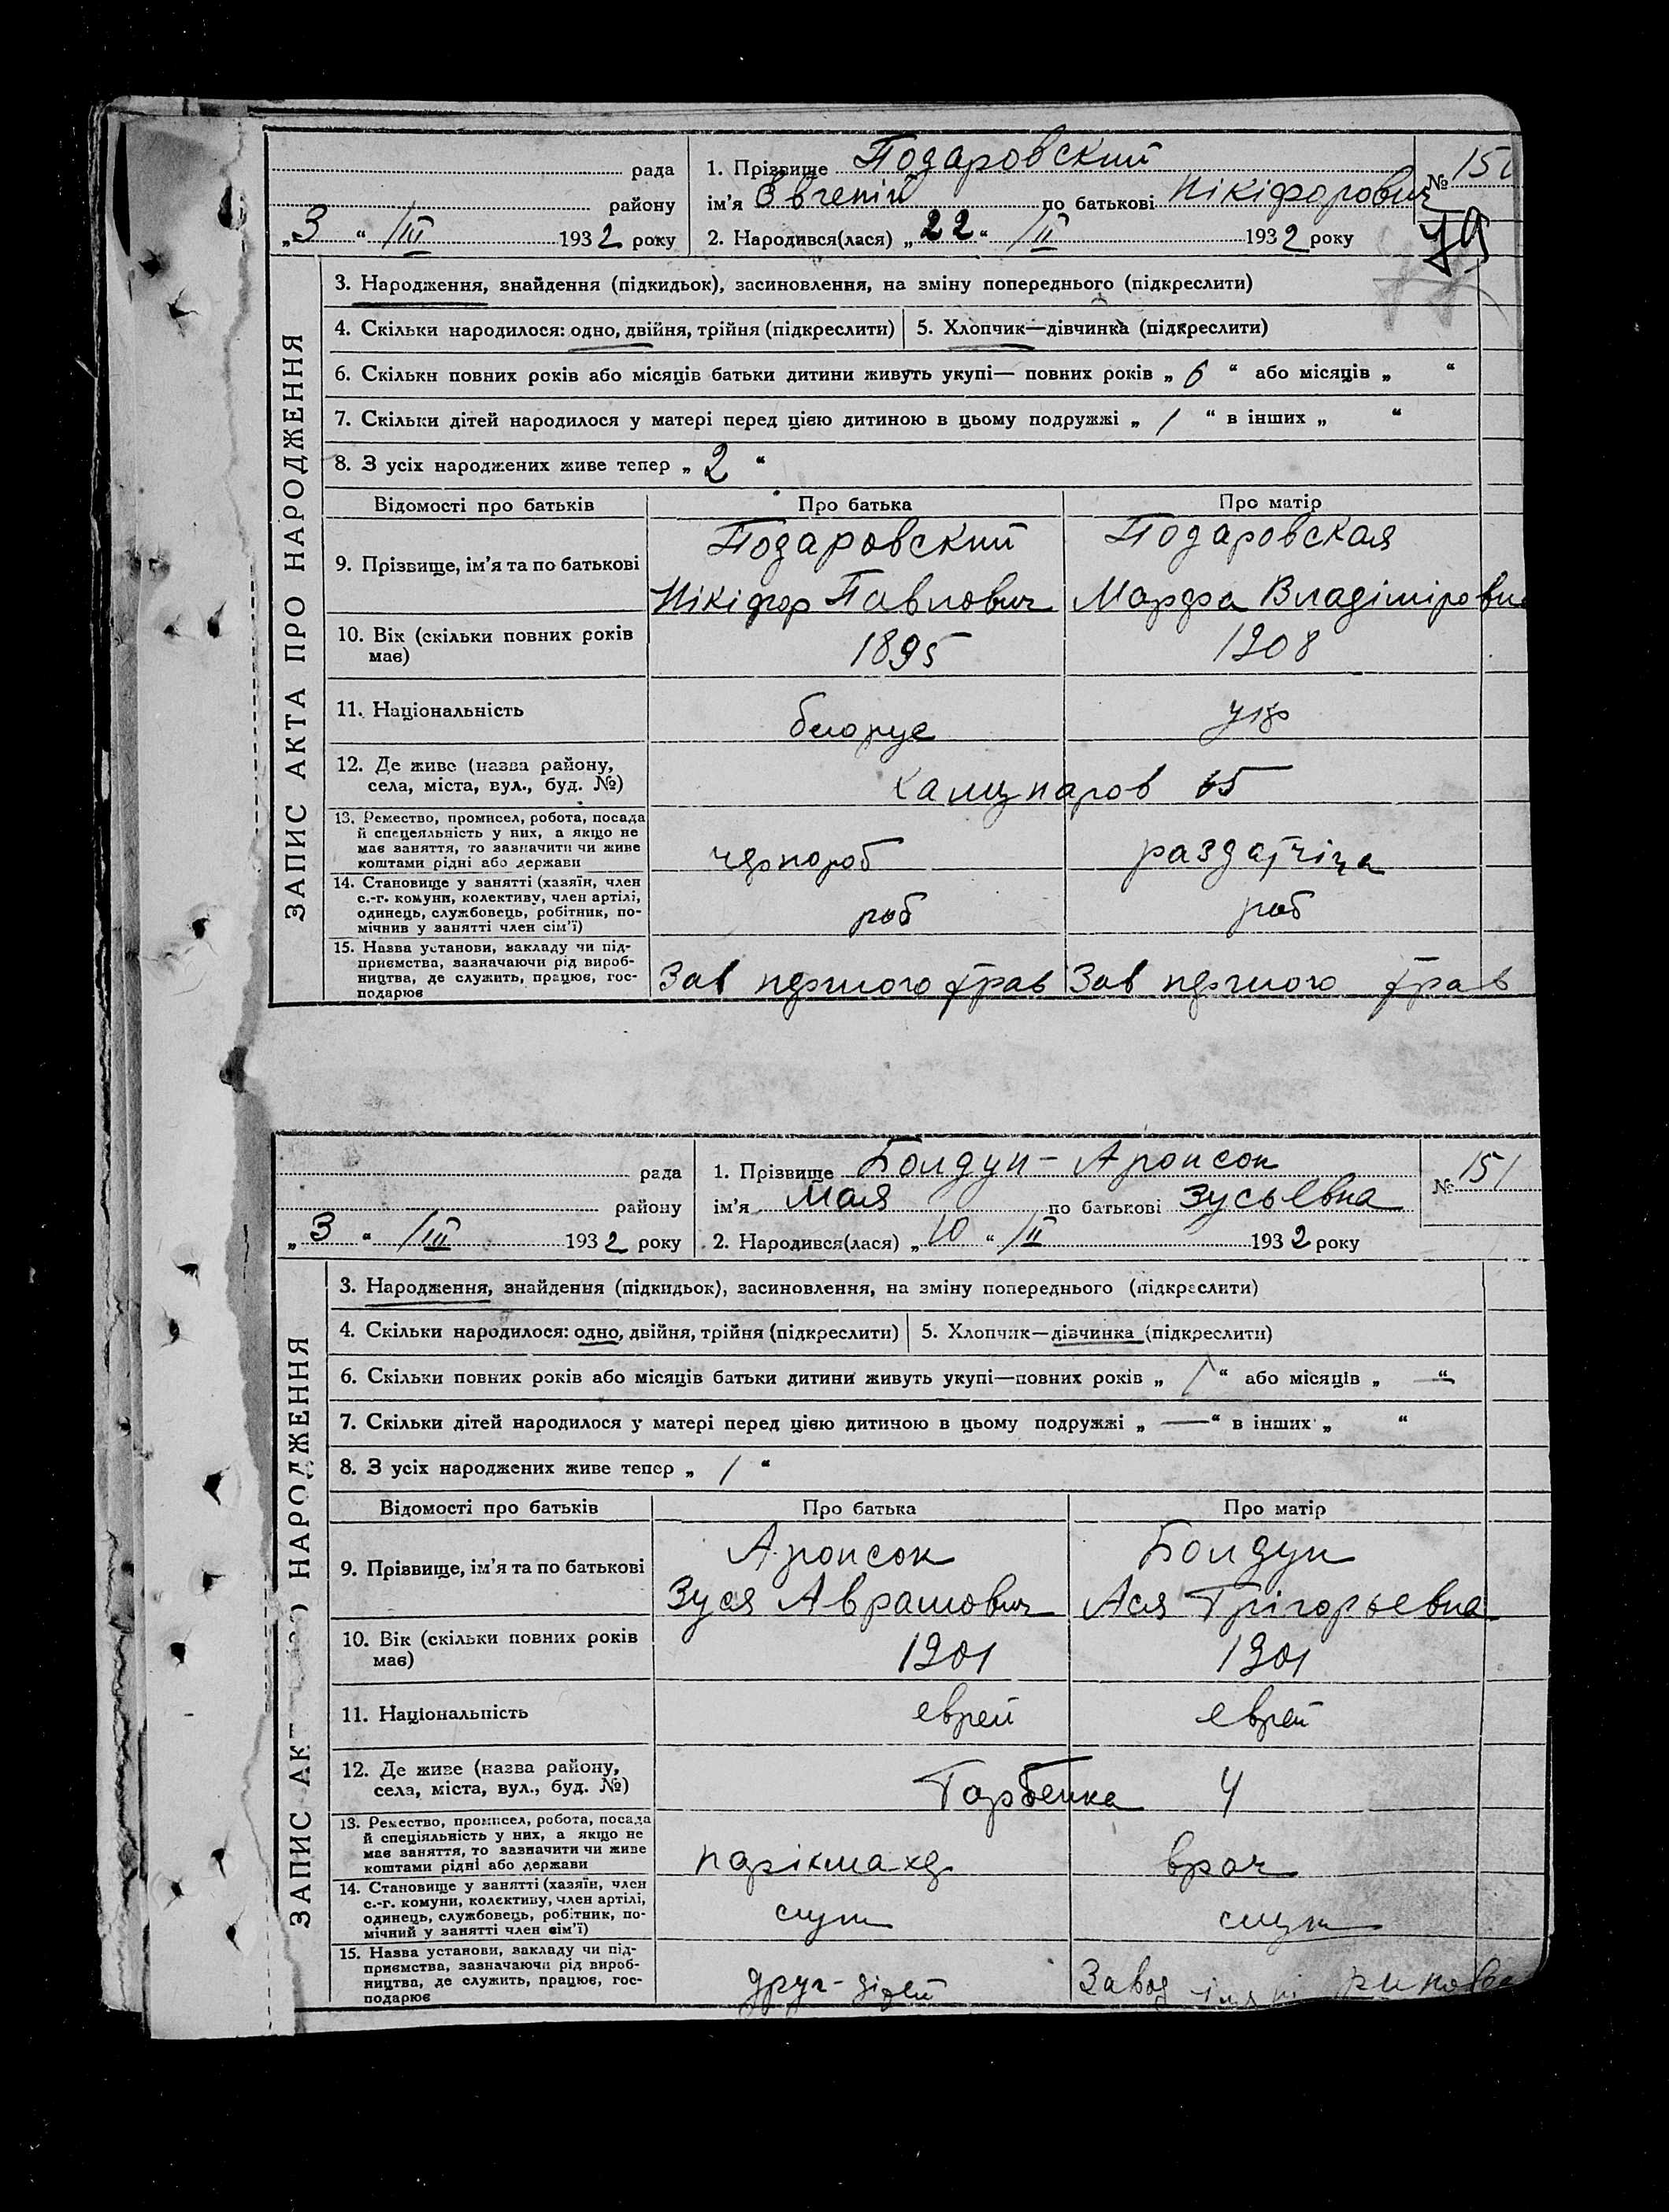 рада
району
„3“ /III 1932 року
1. Прізвище Подаровский
ім'я Євгеній по батькові Нікіфорович
2. Народився(лася) „22“ /II 1932 року
№ 150
79
ЗАПИС АКТА ПРО НАРОДЖЕННЯ
3. Народження, знайдення (підкидьок), засиновлення, на зміну попереднього (підкреслити)
4. Скільки народилося: одно, двійня, трійня (підкреслити)
5. Хлопчик—дівчинка (підкреслити)
6. Скільки повних років або місяців батьки дитини живуть укупі— повних років „6“ або місяців „ “
7. Скільки дітей народилося у матері перед цією дитиною в цьому подружжі „1“ в інших „ “
8. З усіх народжених живе тепер „2“
Відомості про батьків Про батька Про матір
9. Прізвище, ім'я та по батькові
Подаровский
Нікіфор Павлович
Подаровская
Марфа Владіміровна
10. Вік (скільки повних років
має)
1895
1908
11. Національність
белорус
укр
12. Де живе (назва району,
села, міста, вул., буд. №)
15
13. Ремество, промисел, робота, посада
й спецеяльність у них, а якщо не
має заняття, то зазначити чи живе
коштами рідні або держави
чернороб
раздатчіца
14. Становище у занятті (хазяїн, член
с.-г. комуни, колективу, член артілі,
одинець, службовець, робітник, по-
мічнив у занятті член сім'ї)
роб
роб
15. Назва установи, закладу чи під-
приємства, зазначаючи рід вироб-
ництва, де служить, працює, гос-
подарює
Зав першого трав
Зав першого трав
рада
району
„3“ /III 1932 року
1. Прізвище Болдун - Аронсон
ім'я Мая по батькові Зусьевна
2. Народився(лася) „10“ /II 1932 року
№ 151
ЗАПИС АКТ НАРОДЖЕННЯ
3. Народження, знайдення (підкидьок), засиновлення, на зміну попереднього (підкреслити)
4. Скільки народилося: одно, двійня, трійня (підкреслити)
5. Хлопчик—дівчинка (підкреслити)
6. Скільки повних років або місяців батьки дитини живуть укупі—повних років „1“ або місяців „—“
7. Скільки дітей народилося у матері перед цією дитиною в цьому подружжі „—“ в інших „ “
8. З усіх народжених живе тепер „1“
Відомості про батьків Про батька Про матір
9. Прізвище, ім'я та по батькові
Аронсон
Зуся Аврамович
Болдун
Ася Грігорьевна
10. Вік (скільки повних років
має)
1901
1901
11. Національність
еврей
еврей
12. Де живе (назва району,
села, міста, вул., буд. №)
4
13. Ремество, промисел, робота, посада
й спеціяльність у них, а якщо не
має заняття, то зазначити чи живе
коштами рідні або держави
парікмахер
врач
14. Становище у занятті (хазяїн, член
с.-г. комуни, колективу, член артілі,
одинець, службовець, робітник, по-
мічний у занятті член сім'ї)
служ
служ
15. Назва установи, закладу чи під-
приємства, зазначаючи рід вироб-
ництва, де служить, працює, гос-
подарює
друг-дітей
Завод